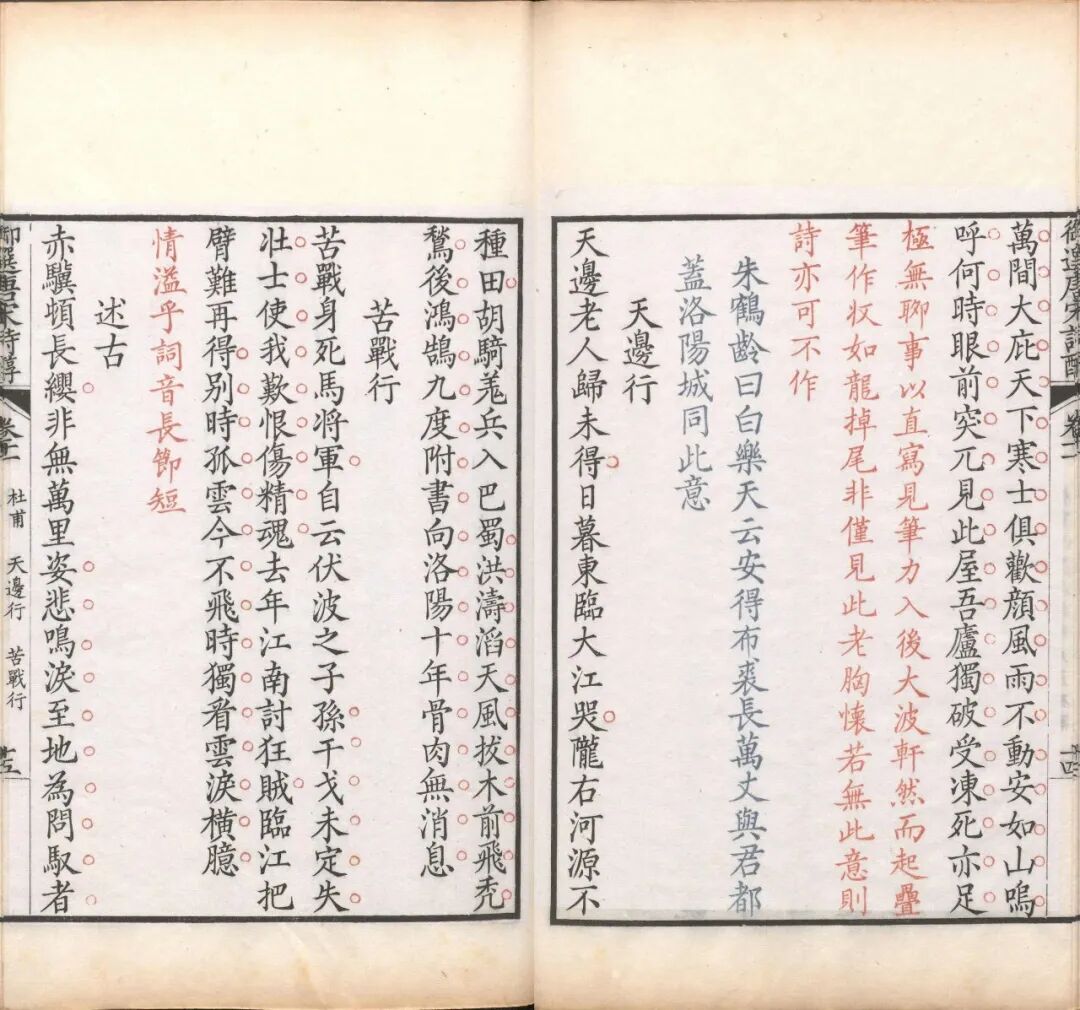 萬間大庇天下寒士俱歡顔風雨不動安如山嗚
呼何時眼前突兀見此屋吾廬獨破受凍死亦足
極無聊事以直寫見筆力入後大波軒然而起疊
筆作收如龍掉尾非僅見此老胸懷若無此意則
詩亦可不作
朱鶴齡曰白樂天云安得布裘長萬丈與君都
蓋洛陽城同此意
天邊行
天邊老人歸未得日暮東臨大江哭隴右河源不
種田胡騎羗兵入巴蜀洪濤滔天風拔木前飛禿
鶖後鴻鵠九度附書向洛陽十年骨肉無消息
苦戰行
苦戰身死馬將軍自云伏波之子孫干戈未定失
壯士使我歎恨傷精魂去年江南討狂賊臨江把
臂難再得别時孤雲今不飛時獨看雲淚橫臆
情溢乎詞音長節短
述古
赤驥頓長纓非無萬里姿悲鳴淚至地為問馭者
御選唐宋詩醇 卷十 杜甫 天邊行 苦戰行